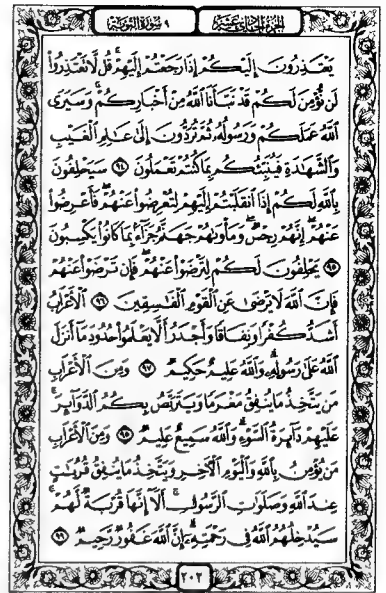 الجزء الحادي عشر ٩ سورة التوبة
يَعْتَذِرُونَ إِلَيْكُمْ إِذَا رَجَعْتُمْ إِلَيْهِمْ قُل لَّا تَعْتَذِرُوا۟
لَن نُّؤْمِنَ لَكُمْ قَدْ نَبَّأَنَا ٱللَّهُ مِنْ أَخْبَارِكُمْ ۚ وَسَيَرَى
ٱللَّهُ عَمَلَكُمْ وَرَسُولُهُۥ ثُمَّ تُرَدُّونَ إِلَىٰ عَـٰلِمِ ٱلْغَيْبِ
وَٱلشَّهَـٰدَةِ فَيُنَبِّئُكُم بِمَا كُنتُمْ تَعْمَلُونَ ٩٤ سَيَحْلِفُونَ
بِٱللَّهِ لَكُمْ إِذَا ٱنقَلَبْتُمْ إِلَيْهِمْ لِتُعْرِضُوا۟ عَنْهُمْ ۖ فَأَعْرِضُوا۟
عَنْهُمْ ۖ إِنَّهُمْ رِجْسٌ ۖ وَمَأْوَىٰهُمْ جَهَنَّمُ جَزَآءًۢ بِمَا كَانُوا۟ يَكْسِبُونَ
٩٥ يَحْلِفُونَ لَكُمْ لِتَرْضَوْا۟ عَنْهُمْ ۖ فَإِن تَرْضَوْا۟ عَنْهُمْ
فَإِنَّ ٱللَّهَ لَا يَرْضَىٰ عَنِ ٱلْقَوْمِ ٱلْفَـٰسِقِينَ ٩٦ ٱلْأَعْرَابُ
أَشَدُّ كُفْرًا وَنِفَاقًا وَأَجْدَرُ أَلَّا يَعْلَمُوا۟ حُدُودَ مَآ أَنزَلَ
ٱللَّهُ عَلَىٰ رَسُولِهِۦ ۗ وَٱللَّهُ عَلِيمٌ حَكِيمٌ ٩٧ وَمِنَ ٱلْأَعْرَابِ
مَن يَتَّخِذُ مَا يُنفِقُ مَغْرَمًا وَيَتَرَبَّصُ بِكُمُ ٱلدَّوَآئِرَ ۚ
عَلَيْهِمْ دَآئِرَةُ ٱلسَّوْءِ ۗ وَٱللَّهُ سَمِيعٌ عَلِيمٌ ٩٨ وَمِنَ ٱلْأَعْرَابِ
مَن يُؤْمِنُ بِٱللَّهِ وَٱلْيَوْمِ ٱلْـَٔاخِرِ وَيَتَّخِذُ مَا يُنفِقُ قُرُبَـٰتٍ
عِندَ ٱللَّهِ وَصَلَوَٰتِ ٱلرَّسُولِ ۚ أَلَآ إِنَّهَا قُرْبَةٌ لَّهُمْ ۚ
سَيُدْخِلُهُمُ ٱللَّهُ فِى رَحْمَتِهِۦٓ ۗ إِنَّ ٱللَّهَ غَفُورٌ رَّحِيمٌ ٩٩
٢٠٢